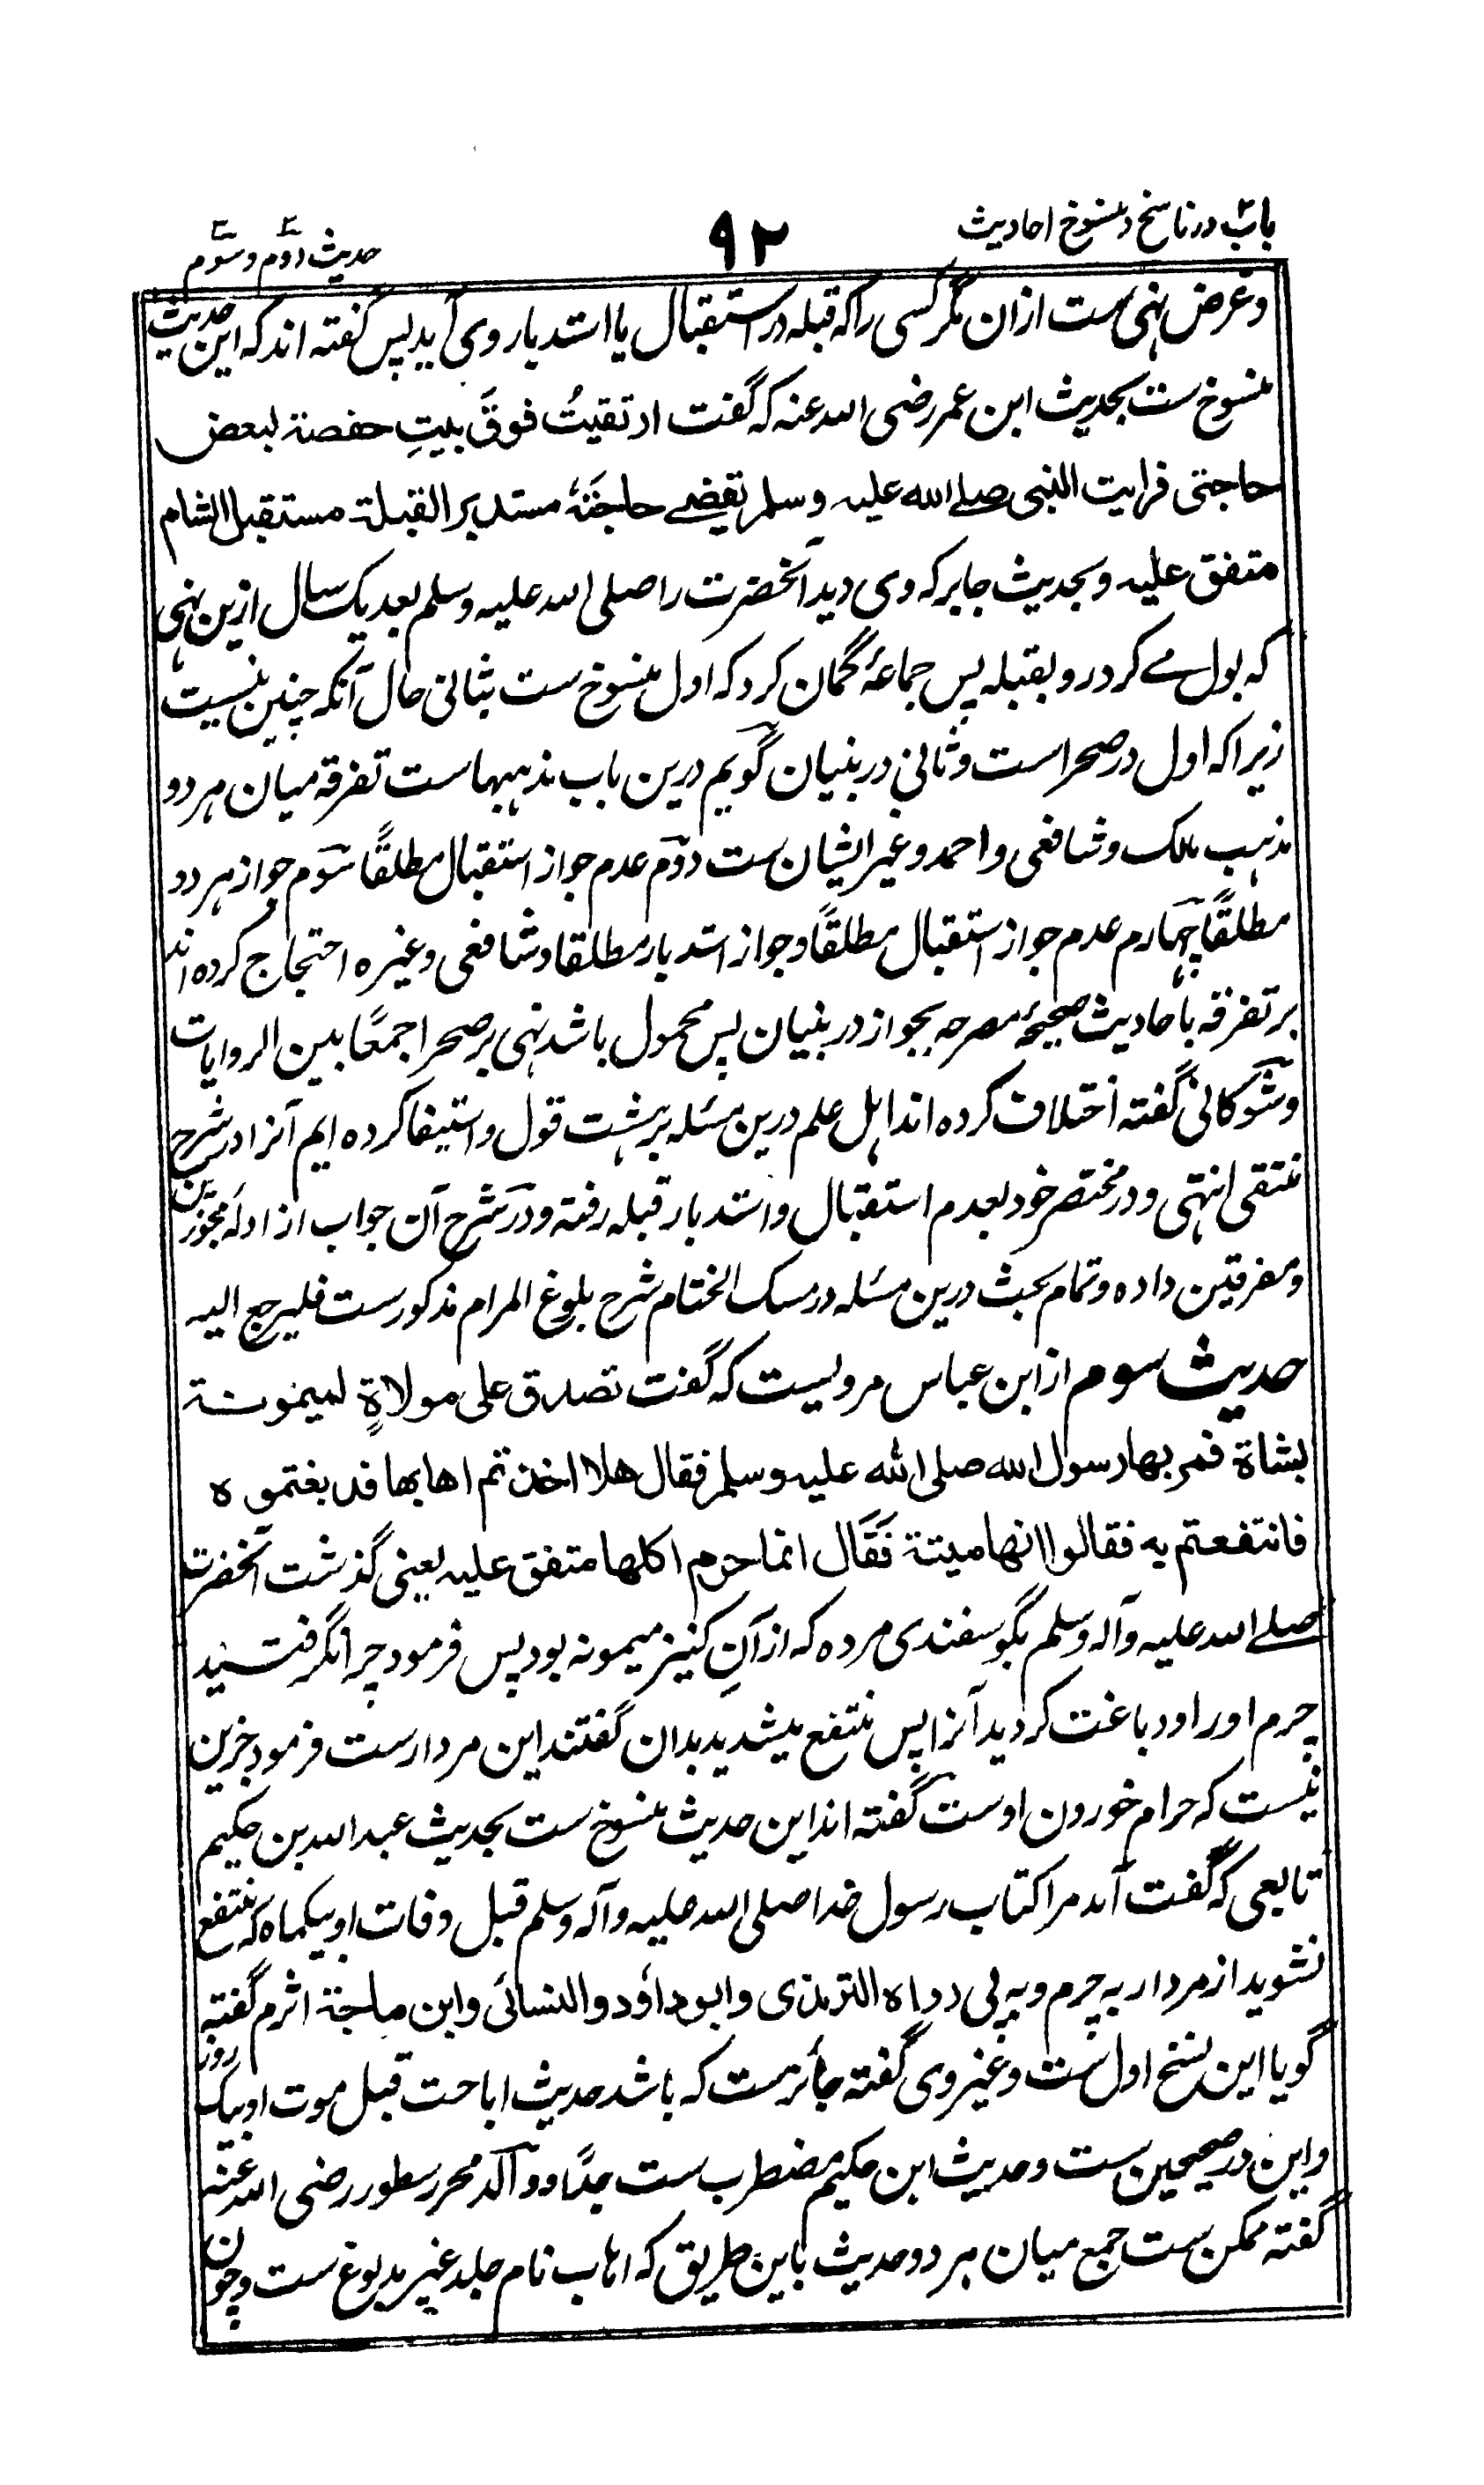 باب در ناسخ و منسوخ احادیث
۹۲
حدیث دوم و سوم
و غرض نہی ست ازان مگر کسی را کہ قبلہ در استقبال یا استدبار وی آید پس گفتہ اند کہ این حدیث
منسوخ ست بحدیث ابن عمر رضی اللہ عنہ کہ گفت ارتقیتُ فوقَ بیتِ حفصۃ لبعض
حاجتی فرایت النبی صلے اللہ علیہ وسلم یقضے حاجتَہٗ مستدبر القبلۃ مستقبل الشام
متفق علیہ و بحدیث جابر کہ وی دید آنحضرت را صلی اللہ علیہ وسلم بعد یک سال ازین نہی
کہ بول مے کرد رو بقبلہ پس جماعۂ گمان کرد کہ اول منسوخ ست بثانی حال آنکہ چنین نیست
زیرا کہ اول در صحرا ست و ثانی در بنیان گویم درین باب مذہبہاست تفرقہ میان ہر دو
مذہب مالک و شافعی و احمد و غیر ایشان ست دوم عدم جواز استقبال مطلقًا سوم جواز ہر دو
مطلقًا چہارم عدم جواز استقبال مطلقًا و جواز استدبار مطلقا و شافعی و غیرہ احتجاج کردہ اند
بر تفرقہ باحادیث صحیحۂ مصرحہ بجواز در بنیان پس محمول باشد نہی بر صحرا جمعًا بین الروایات
و شوکانی گفتہ اختلاف کردہ اند اہل علم درین مسئلہ بر ہشت قول و استیفا کردہ ایم آنرا در شرح
منتقی انتہی و در مختصر خود بعدم استقبال و استدبار قبلہ رفتہ و در شرح آن جواب از ادلۂ مجوزین
و مفرقین دادہ و تمام بحث درین مسئلہ در مسک الختام شرح بلوغ المرام مذکور ست فلیرجع الیہ
حدیث سوم از ابن عباس مرویست کہ گفت تصدق علی مولاۃٍ لمیمونۃ
بشاۃ فمر بہا رسول اللہ صلی اللہ علیہ وسلم فقال ہلا اخذتم اہابہا فدبغتموہ
فانتفعتم بہ فقالوا انہا میتۃ فَقَال انما حرم اکلہا متفق علیہ یعنی گذشت آنحضرت
صلے اللہ علیہ وآلہ وسلم بگوسفندی مردہ کہ از آنِ کنیز میمونہ بود پس فرمود چرا نگرفتید
چرم او را و دباغت کردید آنرا پس منتفع میشدید بدان گفتند این مردار ست فرمود جزین
نیست کہ حرام خوردن اوست گفتہ اند این حدیث منسوخ ست بحدیث عبد اللہ بن حکیم
تابعی کہ گفت آمد مرا کتاب رسول خدا صلی اللہ علیہ وآلہ وسلم قبل وفات او بیکماہ کہ منتفع
نشوید از مردار بہ چرم و بہ پی رواہ الترمذی وابوداؤد والنسائی وابن ماجۃ اثرم گفتہ
گویا این نسخ اول ست و غیر وی گفتہ جائز ست کہ باشد حدیث اباحت قبل موت او بیک روز
و این در صحیحین ست و حدیث ابن حکیم مضطرب ست جدًا و والد محرر سطور رضی اللہ عنہ
گفتہ ممکن ست جمع میان ہر دو حدیث باین طریق کہ اہاب نام جلد غیر مدبوغ ست و چون